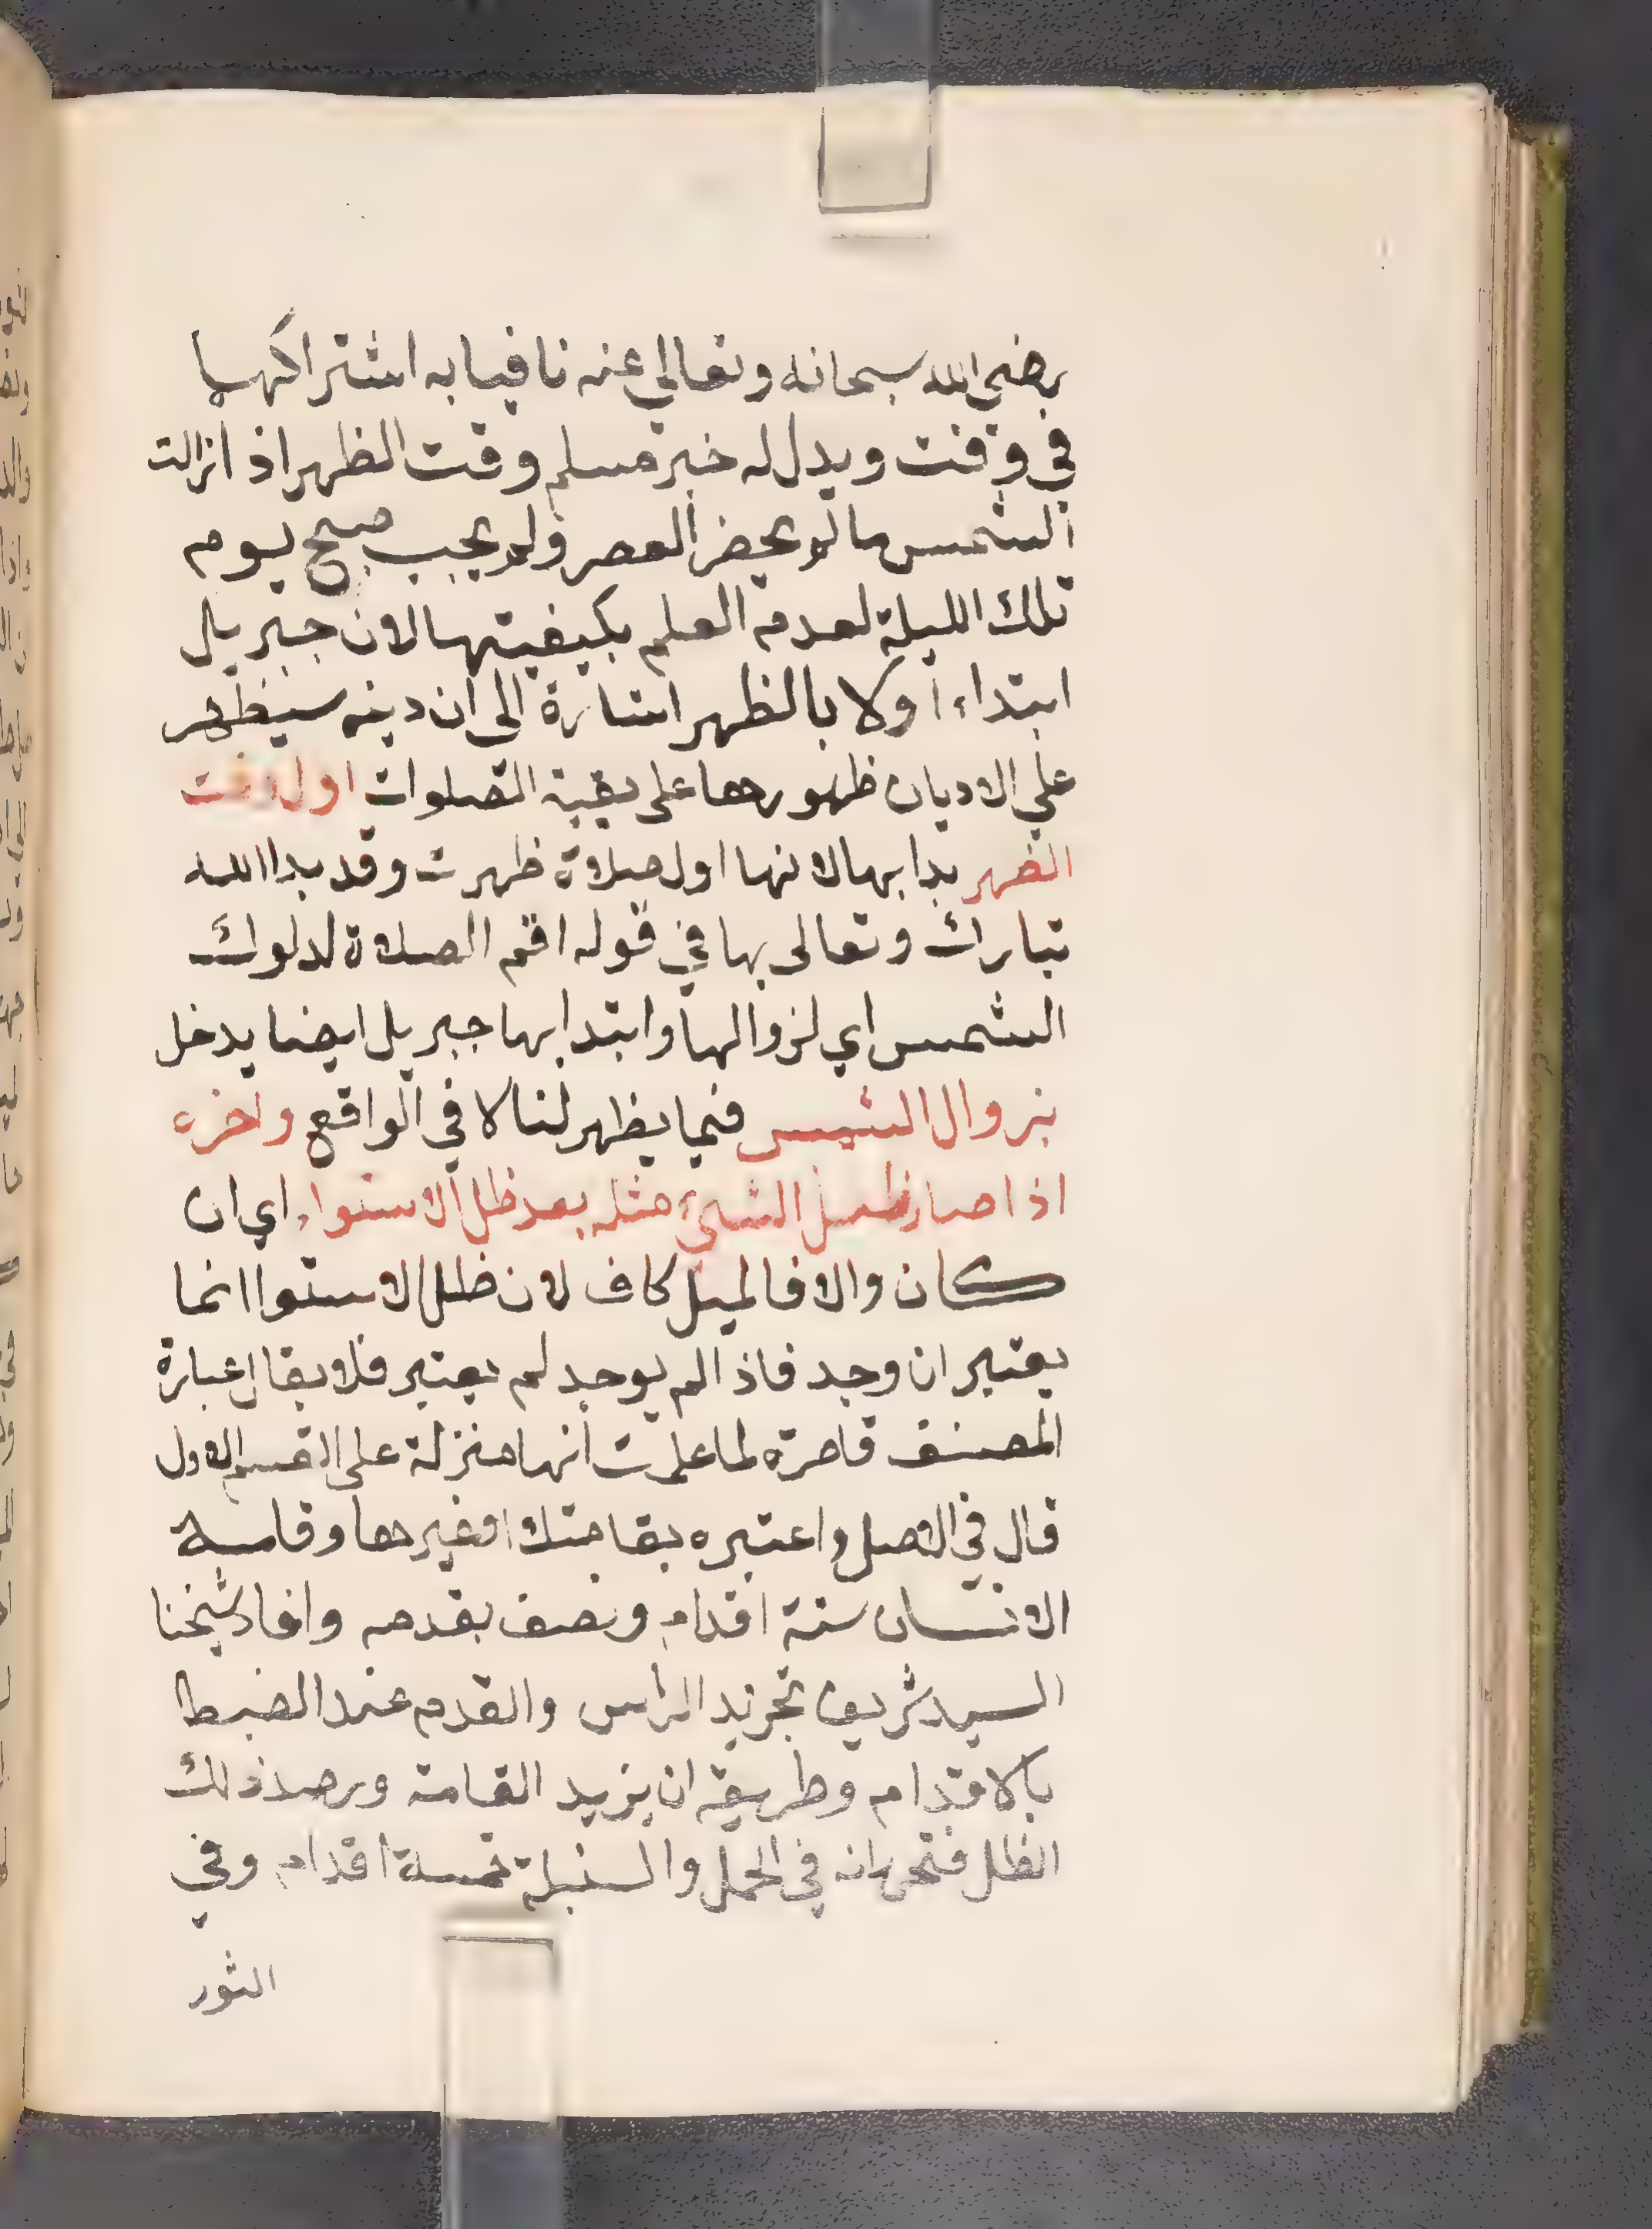 رضي الله سبحانه وتعالى عنه نافيا به اشتراكهما
في وقت ويدل له خبر مسلم وقت الظهر اذا زالت
الشمس مالم يحضر العصر ولم يجب صبح يوم
تلك الليلة لعدم العلم بكيفيتها لان جبريل
ابتداء اولا بالظهر اشارة الى ان دينه سيظهر
على الاديان ظهورها على بقية الصلوات اول وقت
الظهر بدا بها لانها اول صلاة ظهرت وقد بدا الله
تبارك وتعالى بها في قوله اقم الصلاة لدلوك
الشمس اي لزوالها وابتدا بها جبريل ايضا يدخل
بزوال الشمس فيما يظهر لنا لا في الواقع واخره
اذا صار ظل الشيء مثله بعد ظل الاستواء اي ان
كان والا فالميل كاف لان ظل الاستوا انما
يعتبر ان وجد فاذا لم يوجد لم يعتبر فلا يقال عبارة
المصنف قاصرة لما علمت انها منزلة على القسم الاول
قال في الاصل واعتبره بقامتك او غيرها وقامة
الانسان ستة اقدام ونصف بقدمه وافاد شيخنا
السيد شريف تجريد الراس والقدم عند الضبط
بالاقدام وطريقه ان يزيد القامة ورصد ذلك
الظل فتحرانه في الحمل والسنبلة خمسة اقدام وفي
الثور